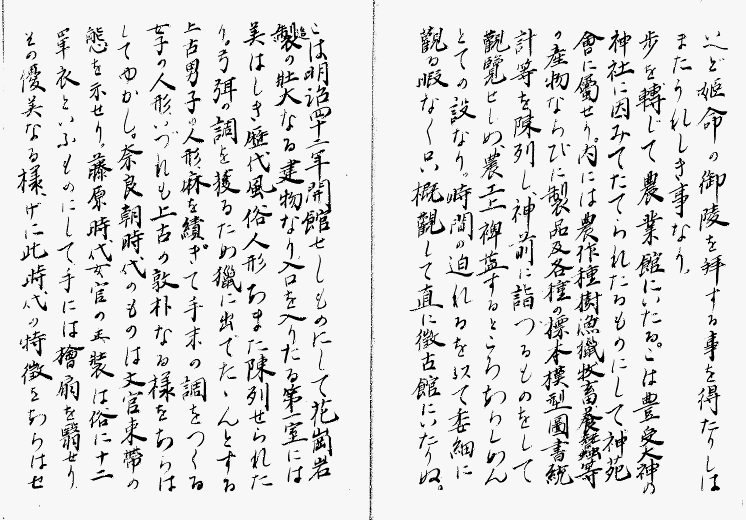 など姫命の御陵を拜する事を得たりしは
またうれしき事なり。
歩を轉じて農業館にいたる。こは豊受大神の
神社に因みてたてられたるものにして神苑
會に屬せり。内には農作種樹漁獵牧畜養蠶等
の產物ならびに製品及各種の標本模型圖書統
計等を陳列し、神前に詣つるものをして
觀覽せしめ、農工上裨益するところあらしめん
とての設なり。時間の迫れるを以て委細に
觀る暇なく只概觀して直に徵古館にいたりぬ。
こは明治四十二年開館せしものにして花崗岩
製の壯大なる建物なり。入口を入りたる第一室には
美はしき歷代風俗人形あまた陳列せられた
り。弓弭の調を獲るため獵に出でたゝんとする
上古男子の人形、麻を績ぎて手末の調をつくる
女子の人形、いづれも上古の敦朴なる樣をあらは
してゆかし。奈良朝時代のものは文官束帶の
態を示せり。藤原時代女官の正裝は俗に十二
單衣といふものにして手には檜扇を翳せり。
その優美なる樣、げに此時代の特徵をあらはせ